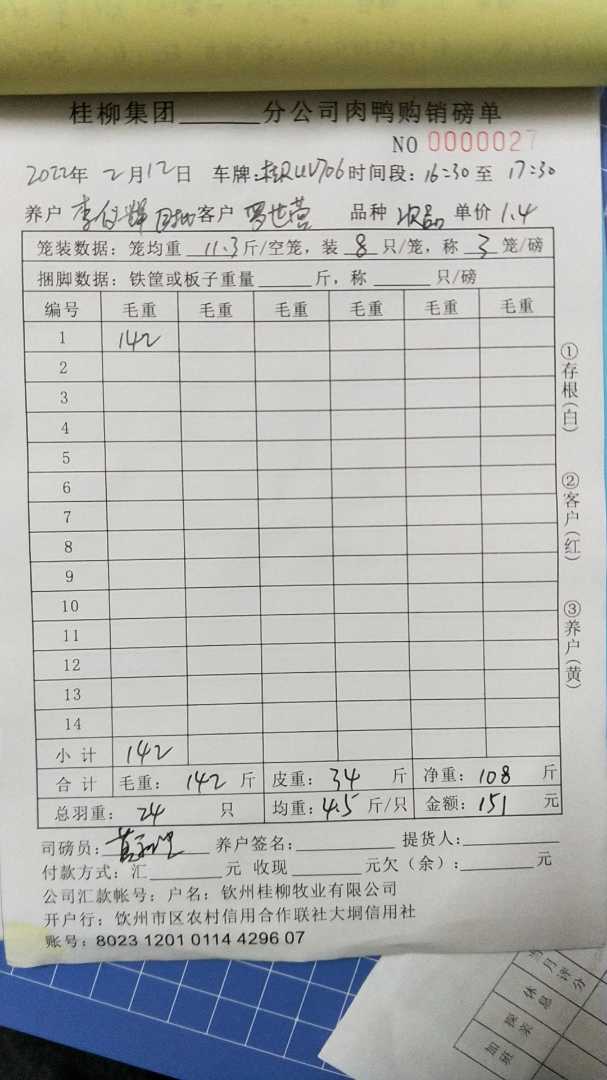 桂柳集团______分公司肉鸭购销磅单
NO 0000027
2022年 2月12日 车牌:桂RUV706 时间段:16:30至 17:30
养户 李 辉 客户 罗世营 品种 次品 单价 1.4
笼装数据: 笼均重 11.3 斤/空笼, 装 8 只/笼, 称 3 笼/磅
捆脚数据: 铁筐或板子重量______斤, 称______只/磅
编号 毛重 毛重 毛重 毛重 毛重 毛重
1 142
2
3
4
5
6
7
8
9
10
11
12
13
14
小 计 142
合 计 毛重: 142 斤 皮重: 34 斤 净重: 108 斤
总羽重: 24 只 均重: 4.5 斤/只 金额: 151 元
司磅员: 黄 养户签名:________ 提货人:________
付款方式: 汇______元 收现______元欠(余):______元
公司汇款帐号: 户名: 钦州桂柳牧业有限公司
开户行: 饮州市区农村信用合作联社大垌信用社
账号: 8023 1201 0114 4296 07
①存根(白)
②客户(红)
③养户(黄)
当月评分
休息
探亲
加班